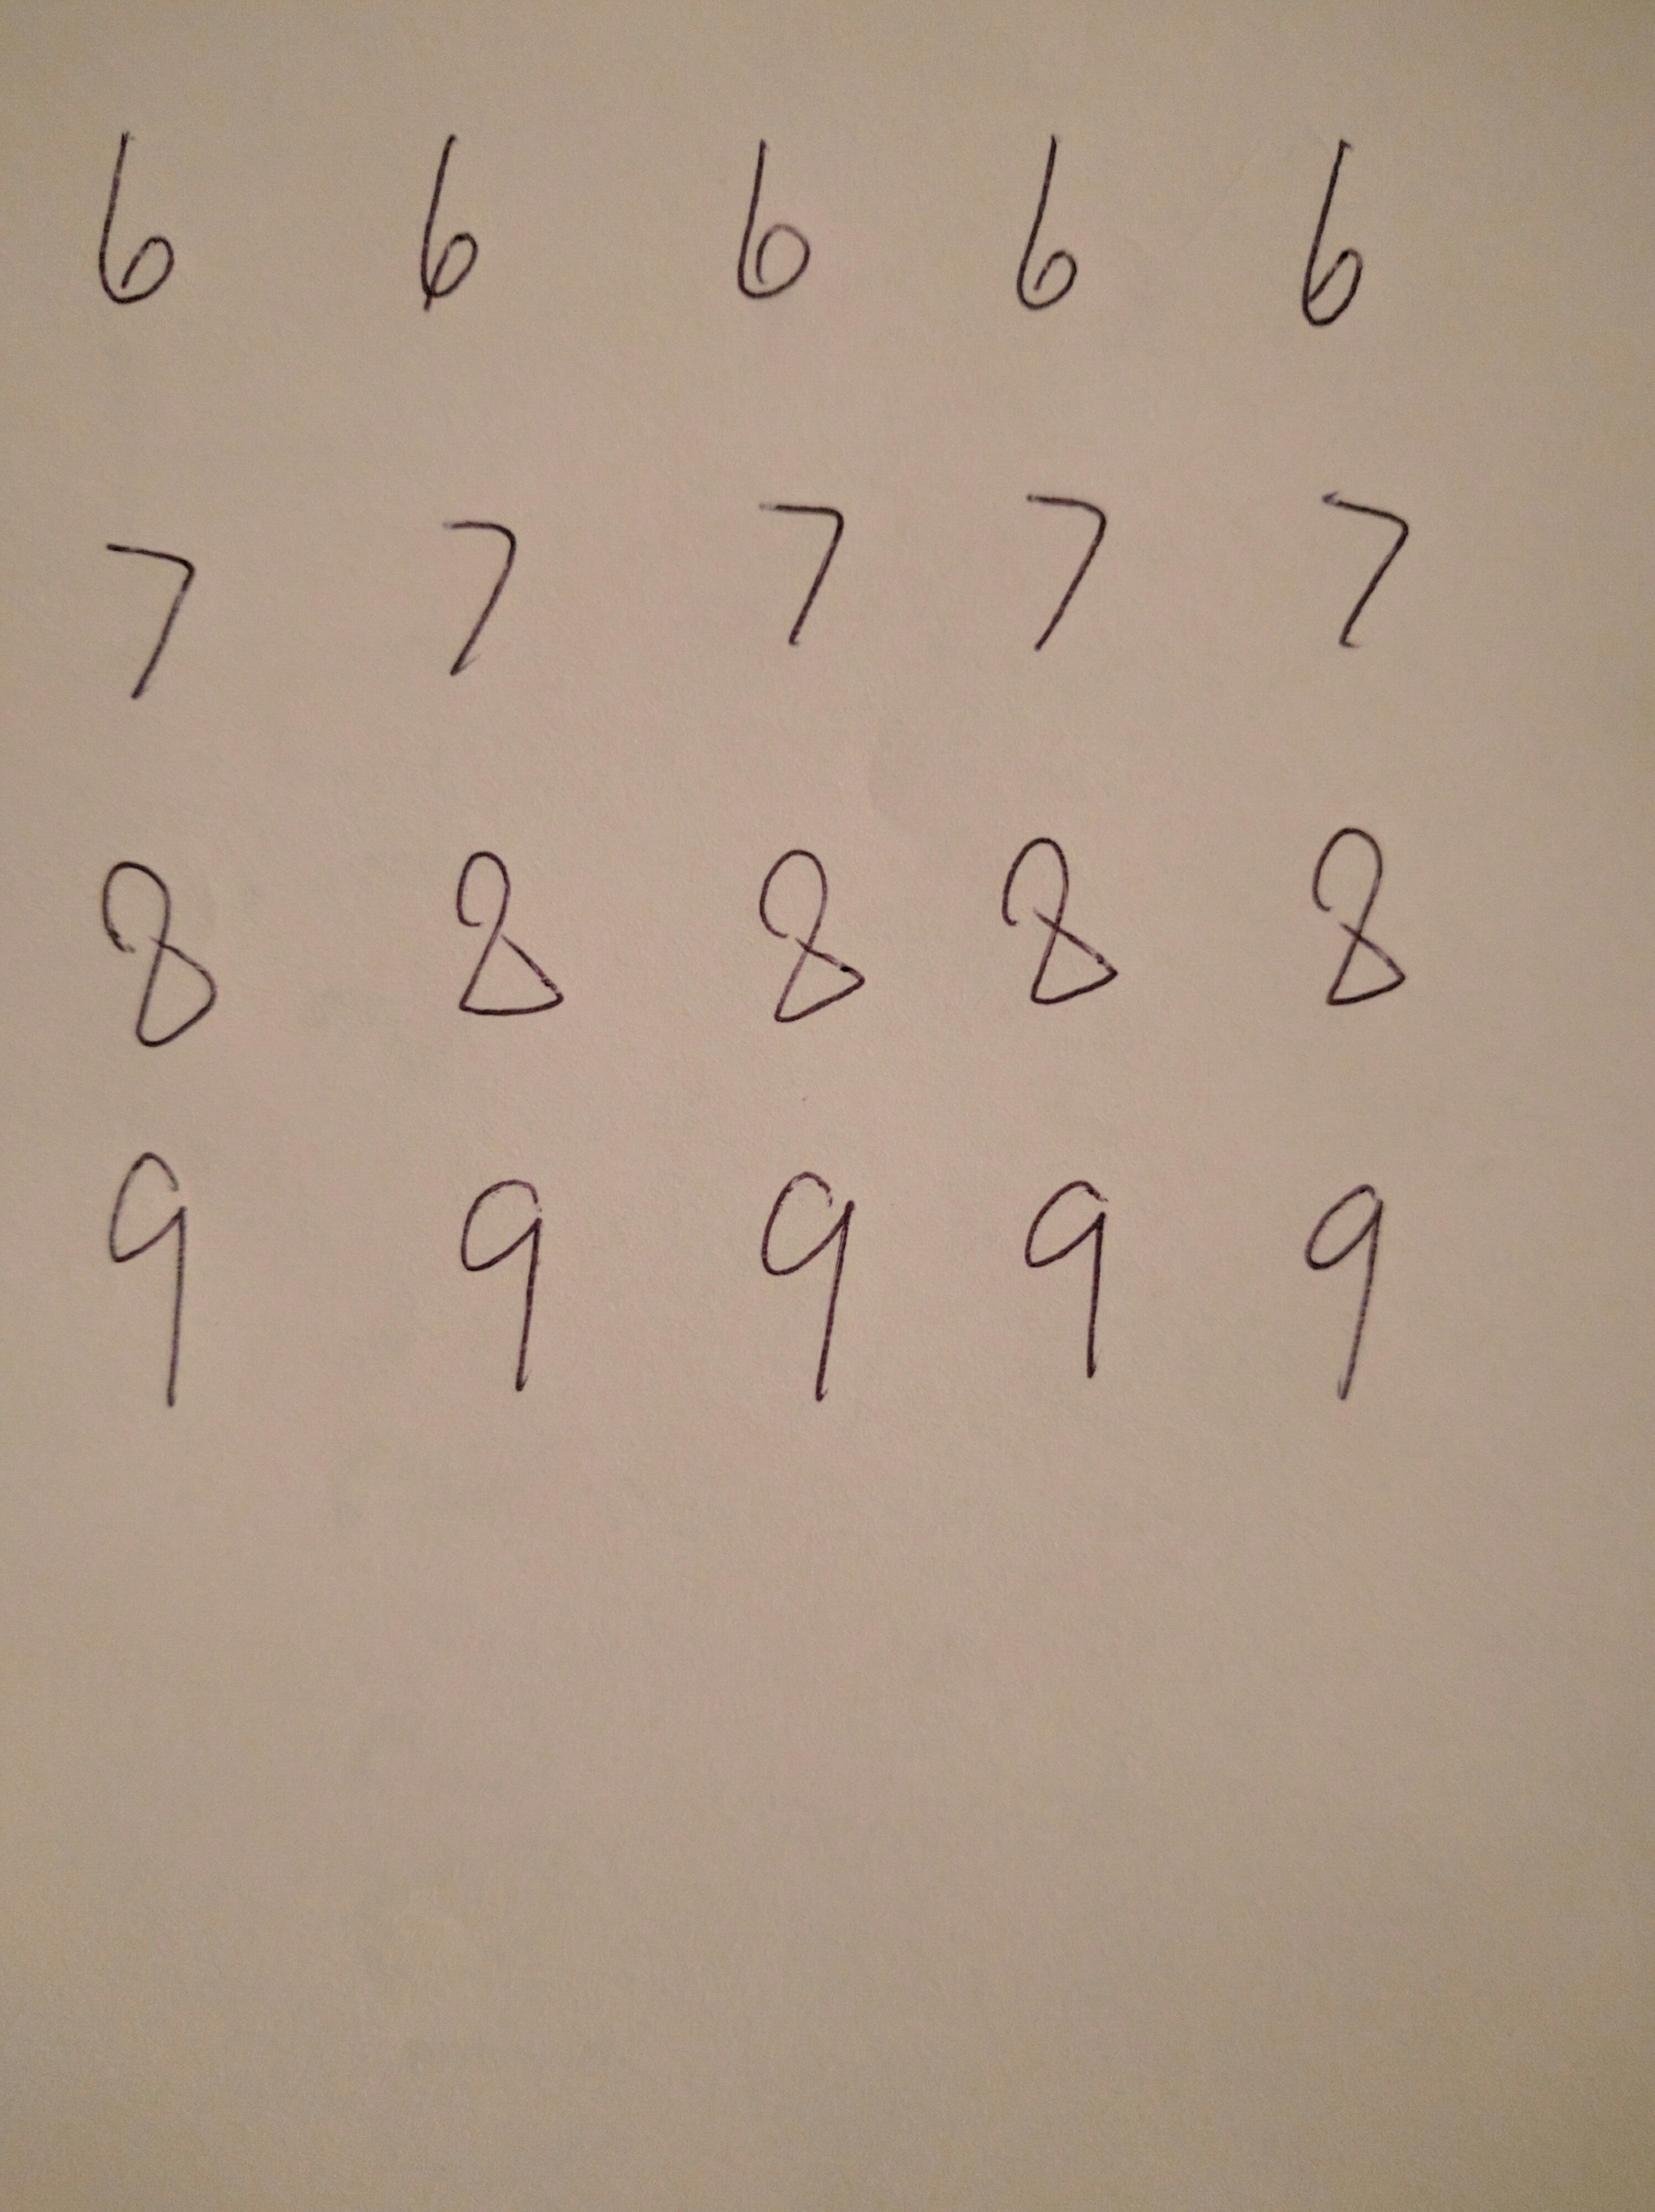 6 6 6 6 6
7 7 7 7 7
8 8 8 8 8
9 9 9 9 9